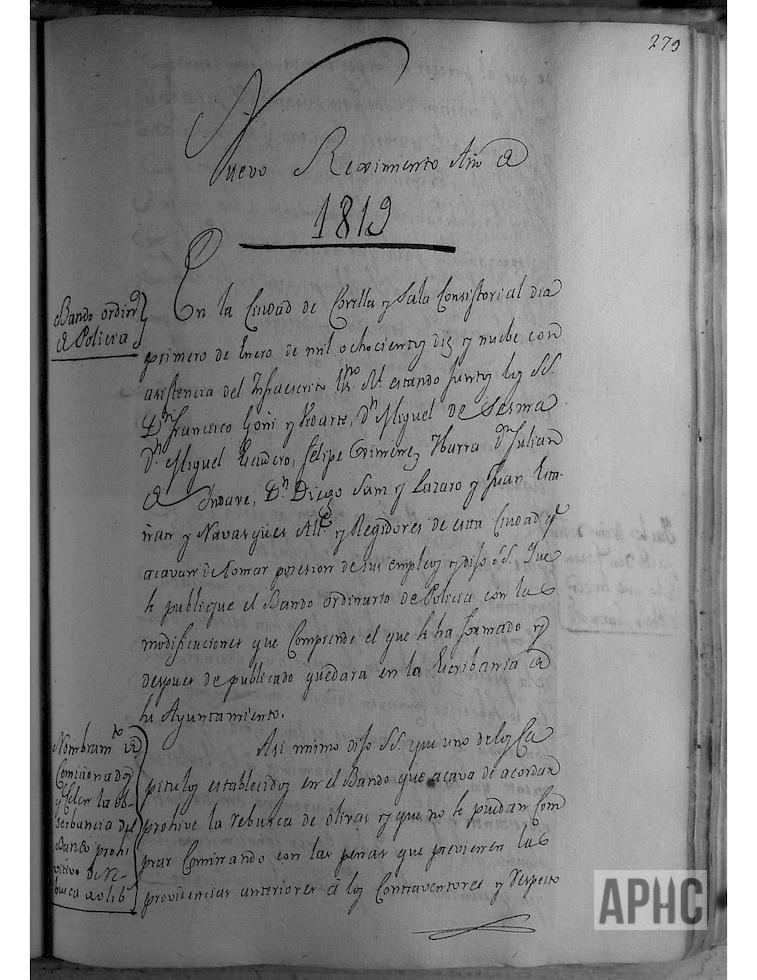 279
Nuevo Reximiento Año de
1819
Bando ordin.º
de Policia
En la Ciudad de Corella y Sala Consistorial dia
primero de Enero de mil ochocientos diez y nuebe con
asistencia del Infraescrito estando juntos los SS.
Dn. Francisco Goñi y Vidarte, Dn. Miguel de Sesma
Dn. Miguel Escudero, Felipe Ximenez Ybarra Dn. Julian
de Yndave, Dn. Diego Sanz y Lazaro y Juan
y Navasques Alc.e y Regidores de esta Ciudad q.e
acavan de tomar posesion de sus empleos y dijo SS. Que
se publique el Bando ordinario de Policia con las
modificaciones que Comprende el que se ha formado y
despues de publicado quedara en la Escribania de
su Ayuntamiento.
Nombram.to de
Comisionados
q.e celen la ob-
serbancia del
Bando prohi
vitivo de re-
busca de olib.s
Asi mimo dijo SS. que uno de los Ca
pitulos establecidos en el Bando que acava de acordar
prohive la rebusca de olivas y que no se puedan Com
prar Cominando con las penas que previenen las
providencias anteriores á los Contraventores y respeto
APHC